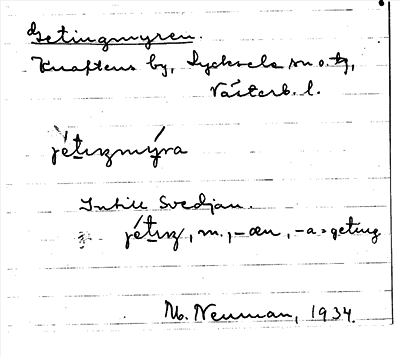 Getingmyren.
Knaftens by, Lycksele sn o. tg,
Västerb. l.
jétıŋmýra
Intill Svedjan.
jétıŋ, m., -æn, -a = geting
M. Neuman, 1934.